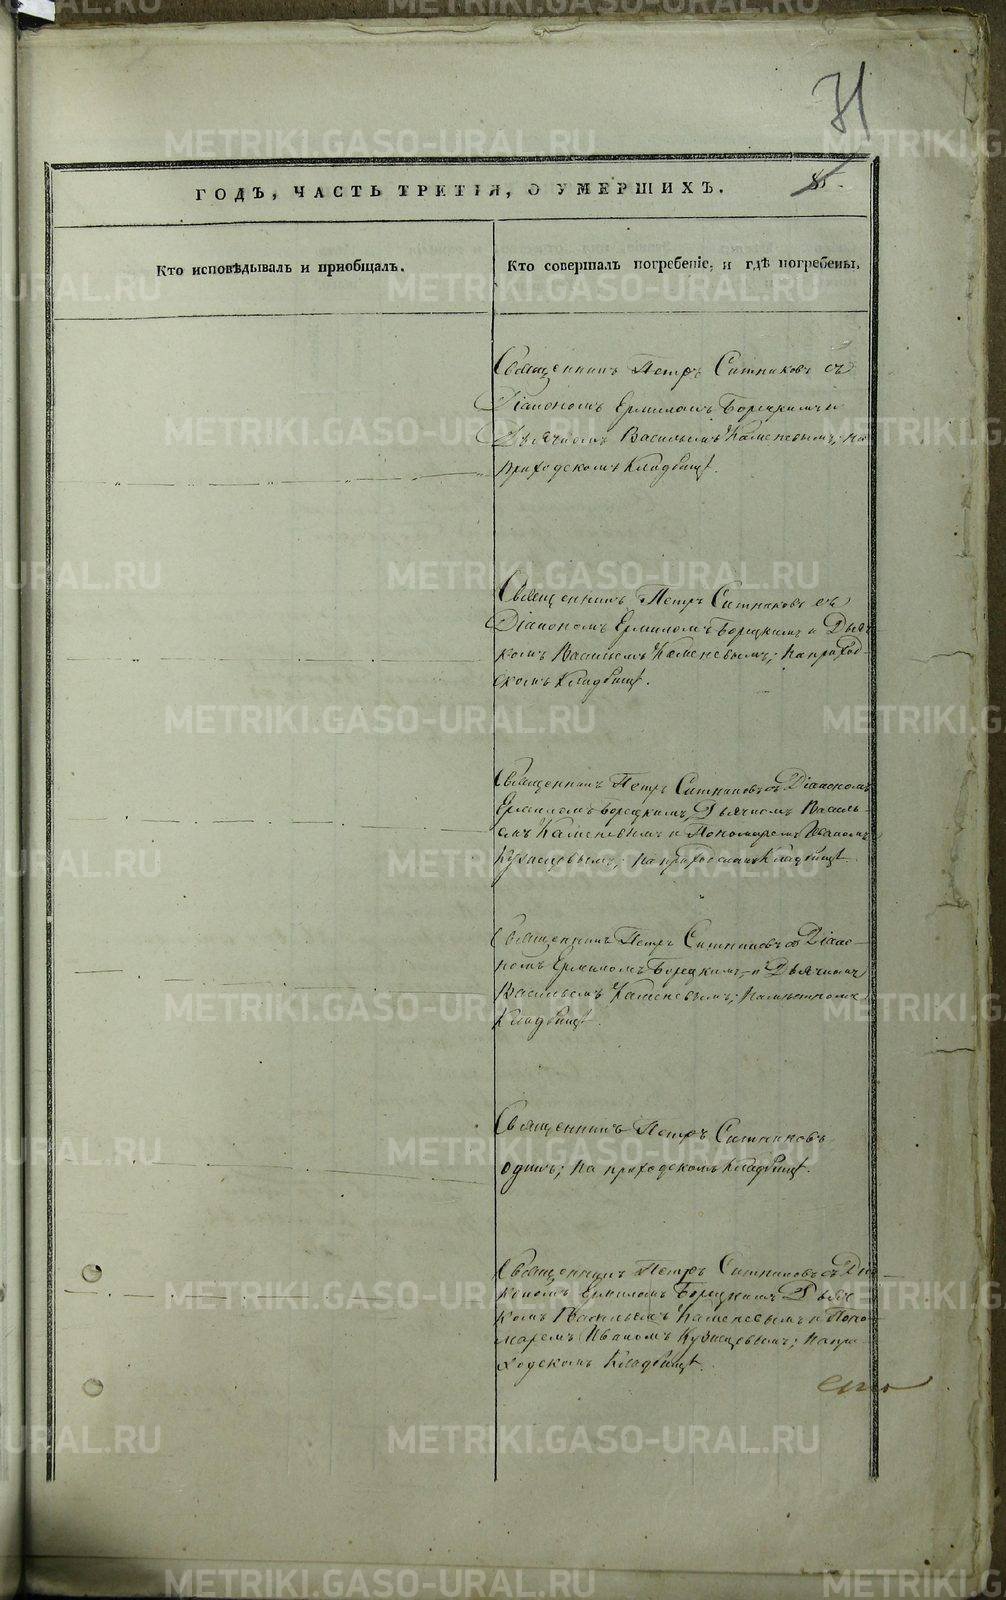 71
ГОДЪ, ЧАСТЬ ТРЕТІЯ, О УМЕРШИХЪ.
Кто исповѣдывалъ и пріобщалъ.
Кто совершалъ погребеніе, и гдѣ погребены.
Священникъ Петръ Ситниковъ съ
Діакономъ Ермиломъ Борецкимъ и
Дьячкомъ Васильемъ Каменевымъ; на
приходскомъ Кладбищѣ.
Священникъ Петръ Ситниковъ съ
Діакономъ Ермиломъ Борецкимъ и Дьяч-
комъ Васильемъ Каменевымъ; на приход-
скомъ Кладбищѣ.
Священникъ Петръ Ситниковъ съ Діакономъ
Ермиломъ Борецкимъ, Дьячкомъ Василь-
емъ Каменевымъ и Пономаремъ Иваномъ
Кузнецовымъ; на приходскомъ Кладбищѣ.
Священникъ Петръ Ситниковъ съ Діако-
номъ Ермиломъ Борецкимъ, и Дьячкомъ
Васильемъ Каменевымъ; на мѣстномъ
Кладбищѣ.
Священникъ Петръ Ситниковъ
одинъ; на приходскомъ Кладбищѣ.
Священникъ Петръ Ситниковъ съ Діа-
кономъ Ермиломъ Борецкимъ Дьяч-
комъ Васильемъ Каменевымъ и Поно-
маремъ Иваномъ Кузнецовымъ; на при-
ходскомъ Кладбищѣ.
METRIKI.GASO-URAL.RU